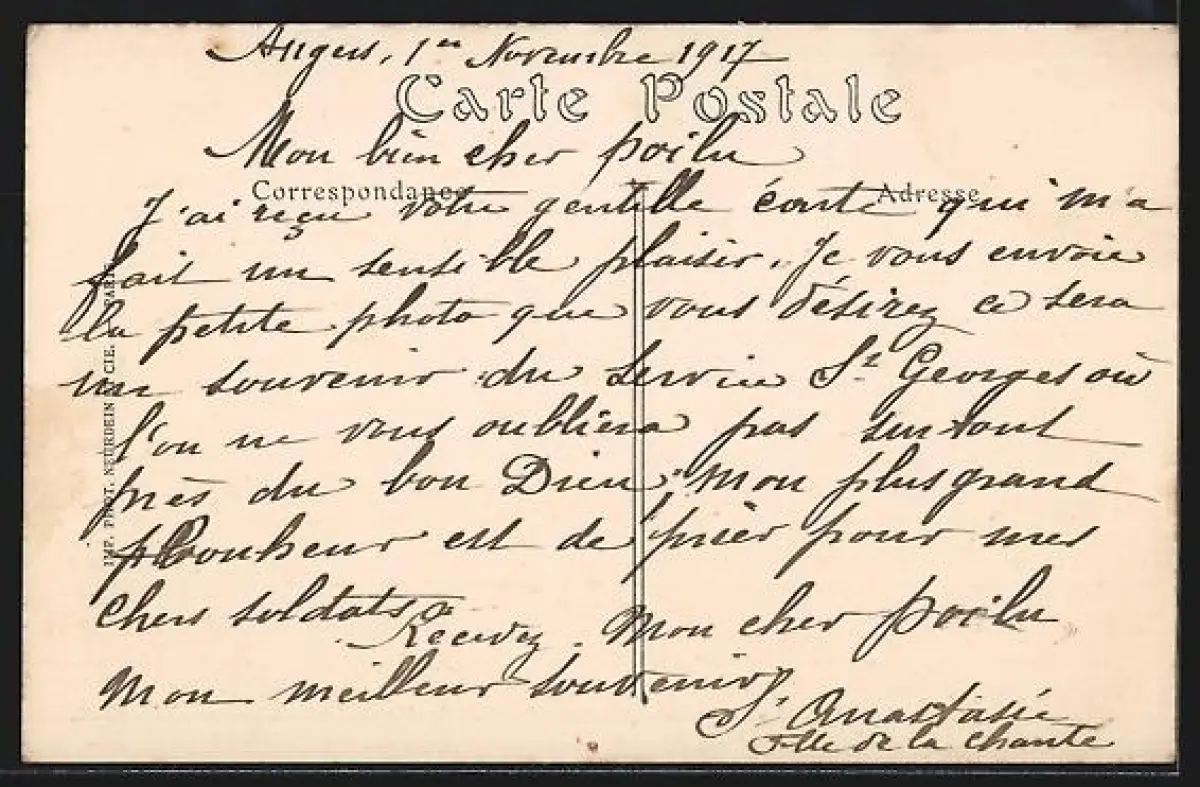 Angers, 1er Novembre 1917
Carte Postale
Mon bien cher poilu
Correspondance
Adresse
J'ai reçu votre gentille carte qui m'a
fait un sensible plaisir. Je vous envoie
la petite photo que vous désirez ce sera
un souvenir du service St Georges où
l'on ne vous oubliera pas surtout
près du bon Dieu, mon plus grand
bonheur est de prier pour mes
chers soldats
Recevez Mon cher poilu
Mon meilleur souvenir
Sr Anastasie
Flle de la Charité
IMP. PHOT. NEURDEIN CIE. PARIS